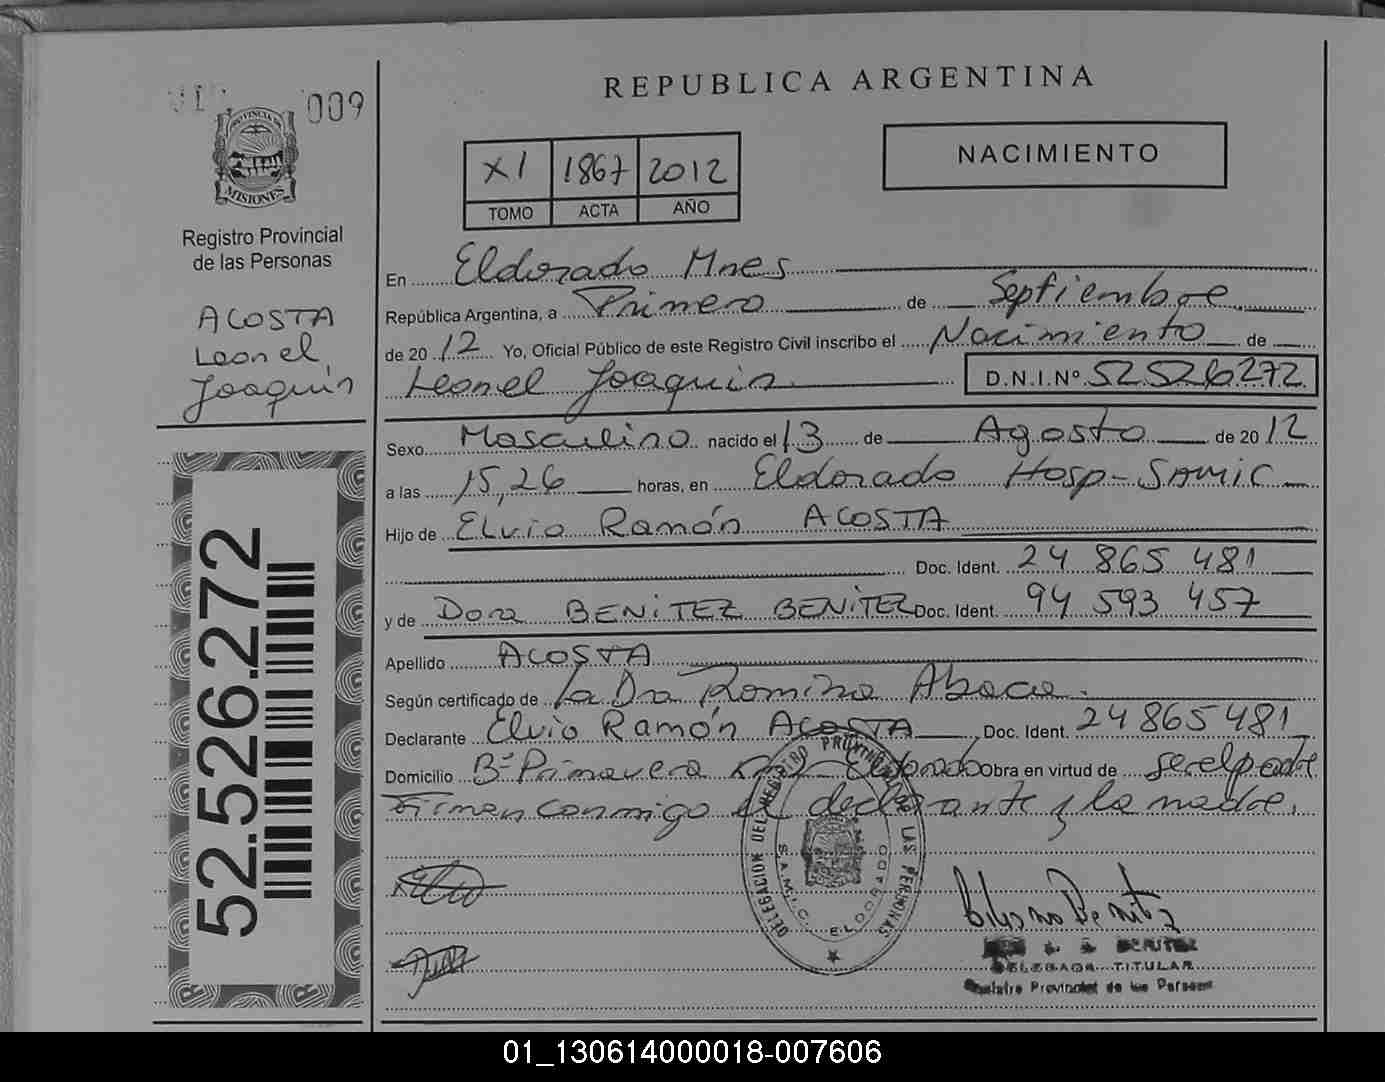 009
PROVINCIA DE
MISIONES
Registro Provincial
de las Personas
ACOSTA
Leonel
Joaquín
52.526.272
REPUBLICA ARGENTINA
XI 1867 2012
TOMO ACTA AÑO
NACIMIENTO
En Eldorado Mnes
República Argentina, a Primero de Septiembre
de 20 12 Yo, Oficial Público de este Registro Civil inscribo el Nacimiento de
Leonel Joaquín D.N.I.Nº 52526272
Sexo Masculino nacido el 13 de Agosto de 20 12
a las 15,26 horas, en Eldorado Hosp-SAMIC
Hijo de ELvio Ramón ACOSTA
Doc. Ident. 24 865 481
y de Dora BENiTEZ BENiTEZ Doc. Ident. 94 593 457
Apellido ACOSTA
Según certificado de La Dra Romina Abaca.
Declarante Elvio Ramón ACOSTA Doc. Ident. 24865481
Domicilio Bº Primavera Eldorado Obra en virtud de ser el padre
Firman conmigo el declarante y la madre.
DELEGACION DEL REGISTRO PROVINCIAL DE LAS PERSONAS
S.A.M.I.C. ELDORADO
Benitez
BENITEZ
DELEGADA TITULAR
Registro Provincial de las Personas
01_130614000018-007606